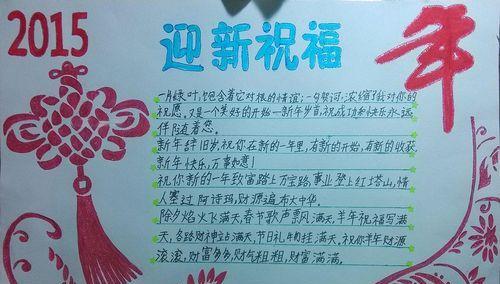 2015
迎新祝福
年
一片绿叶,饱含着它对根的情谊;一句贺词,浓缩了我对你的
祝愿。又是一个美好的开始—新年岁首,祝成功和快乐永远
伴随着您。
新年辞旧岁,祝你在新的一年里,有新的开始,有新的收获,
新年快乐,万事如意!
祝你新的一年致富踏上万宝路,事业登上红塔山,情
人赛过阿诗玛,财源遍布大中华。
除夕焰火飞满天,春节歌声飘满天,羊年祝福写满
天,各路财神站满天,节日礼物挂满天,祝你羊年财源
滚滚,财富多多,财气粗粗,财富满满。